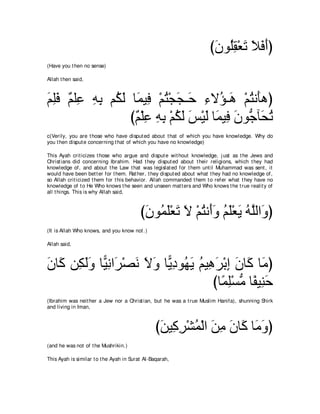 (أَفَلاَ تَعْقِلُونَ)
(Have you then no sense)
Allah then said,
(هأَنتُمْ هَـؤُلاءِ حَـجَجْتُمْ فِيمَا لَكُم بِهِ عِلمٌ فَلِمَ
تُحَآجُّونَ فِيمَا لَيْسَ لَكُمْ بِهِ عِلْمٌ)
c(Verily, you are those who have disputed about that of which you have knowledge. Why do
you then dispute concerning that of which you have no knowledge)
This Ayah criticizes those who argue and dispute without knowledge, just as the Jews and
Christians did concerning Ibrahim. Had they disputed about their religions, which they had
knowledge of, and about the Law that was legislated for them until Muhammad was sent, it
would have been better for them. Rather, they disputed about what they had no knowledge of,
so Allah criticized them for this behavior. Allah commanded them to refer what they have no
knowledge of to He Who knows the seen and unseen matters and Who knows the true reality of
all things. This is why Allah said,
(وَاللَّهُ يَعْلَمُ وَأَنتُمْ لاَ تَعْلَمُونَ)
(It is Allah Who knows, and you know not.)
Allah said,
(مَا كَانَ إِبْرَهِيمُ يَهُودِيًّا وَلاَ نَصْرَانِيًّا وَلَكِن كَانَ
حَنِيفًا مُّسْلِمًا)
(Ibrahim was neither a Jew nor a Christian, but he was a true Muslim Hanifa), shunning Shirk
and living in Iman,
(وَمَا كَانَ مِنَ الْمُشْرِكِينَ)
(and he was not of the Mushrikin.)
This Ayah is similar to the Ayah in Surat Al-Baqarah,